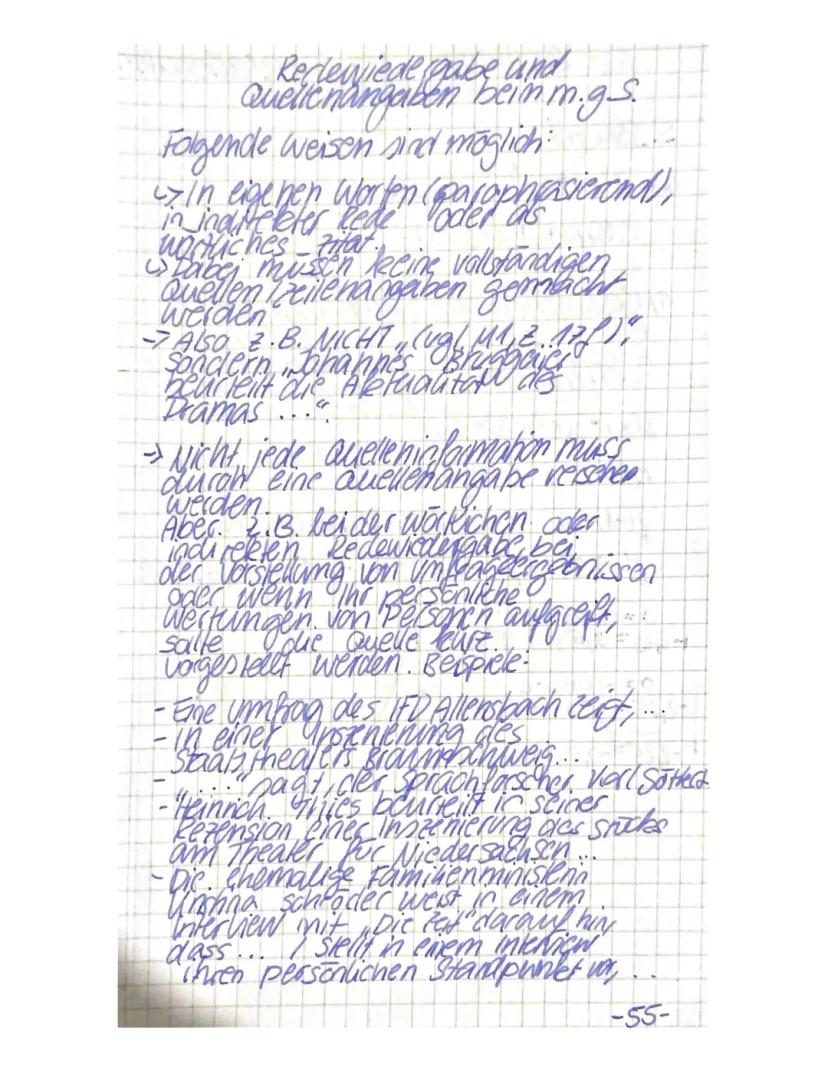 Redewiedergabe und
Quellenangaben beim m.g.S.
Folgende weisen sind möglich:
↳ In eigenen Worten (paraphrasierend),
in indirekter Rede oder als
wörtliches Zitat.
↳ Dabei müssen keine vollständigen
Quellen/Zeilenangaben gemacht
werden
→ Also z.B. NICHT „(vgl. M1, Z. 17f)“,
sondern „Johannes Bruggaier
beurteilt die Aktualität des
Dramas ...“.
→ Nicht jede Quelleninformation muss
durch eine Quellenangabe versehen
werden.
Aber: z.B. bei der wörtlichen oder
indirekten Redewiedergabe, bei
der Vorstellung von Umfrageergebnissen
oder wenn ihr persönliche
Wertungen von Personen aufgreift,
sollte die Quelle kurz
vorgestellt werden. Beispiele:
- Eine Umfrag des IFD Allensbach zeigt, ...
- In einer Inszenierung des
Staatstheaters Braunschweig...
- „....“ sagt, der Sprachforscher Karl
- Heinrich Thies beurteilt in seiner
Rezension einer Inszenierung des Stücks
am Theater für Niedersachsen...
- Die ehemalige Familienministerin
Schröder weist in einem
Interview mit „Die Zeit“ darauf hin,
dass... / stellt in einem Interview
ihren persönlichen Standpunkt vor, ...
-55-